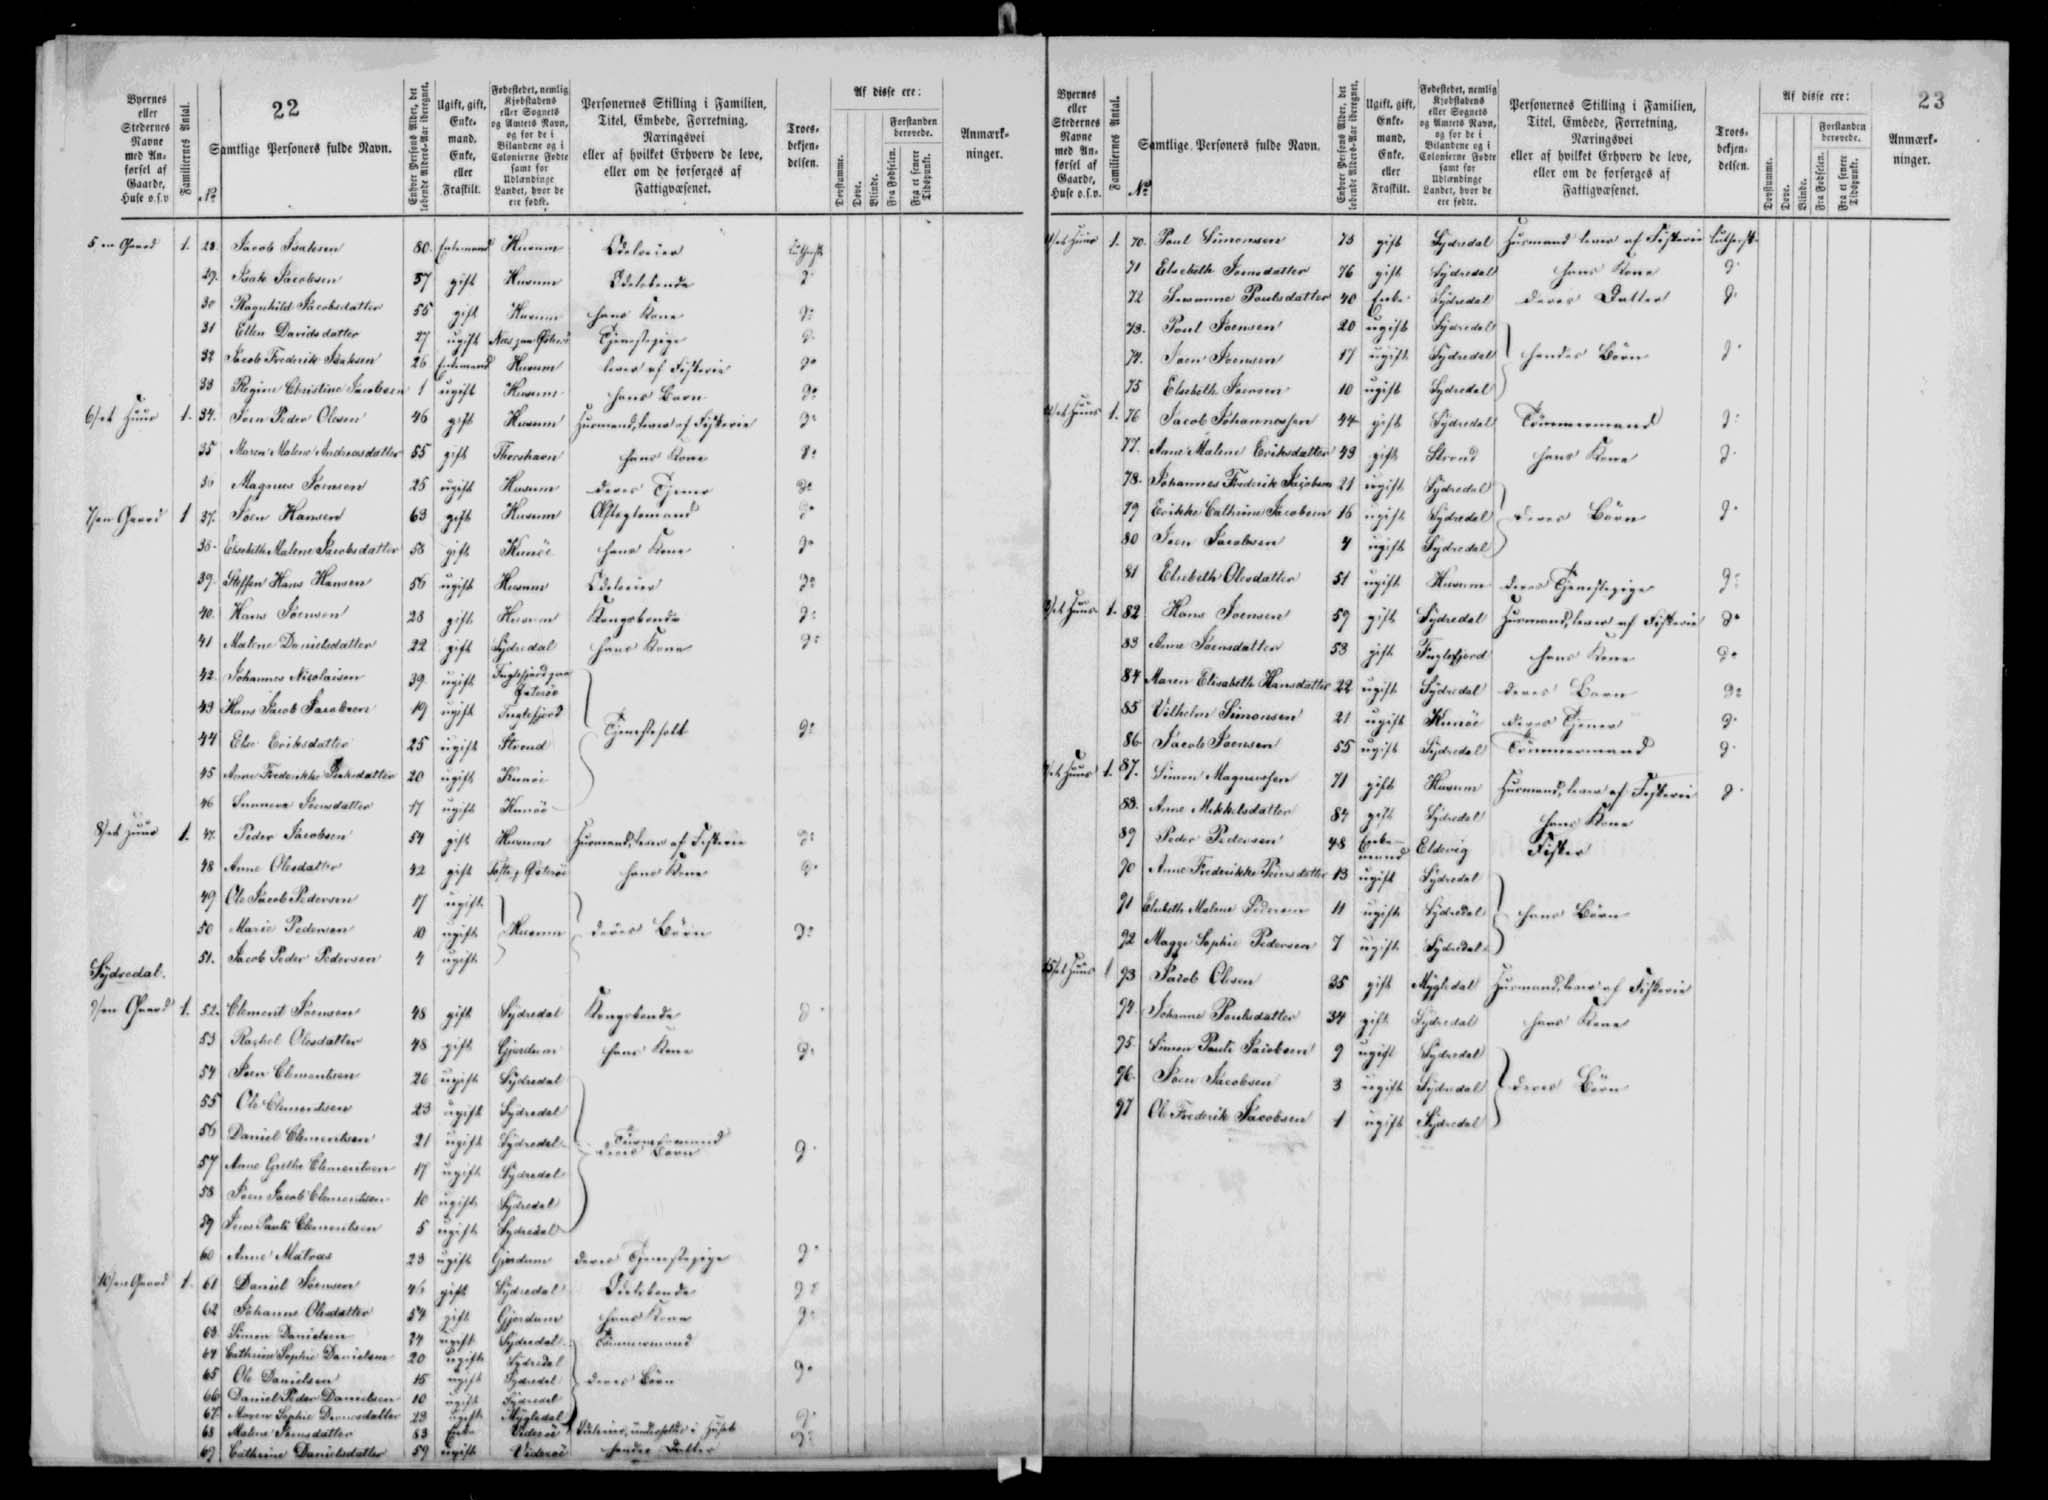 22
Byernes eller Stedernes Navne med Anførsel af Gaarde, Huse o.s.v
Familiernes Antal.
No
Samtlige Personers fulde Navn.
Enhver Persons Alder, det løbende Alders-Aar iberegnet.
Ugift, gift, Enkemand, Enke, eller Fraskilt.
Fødestedet, nemlig Kjøbstadens eller Sognets og Amtets Navn, og for de i Bilandene og i Colonierne Fødte samt for Udlændinge Landet, hvor de ere fødte.
Personernes Stilling i Familien, Titel, Embede, Forretning, Næringsvei eller af hvilket Erhverv de leve, eller om de forsørges af Fattigvæsenet.
Troesbekjendelsen.
Af disse ere:
Døvstumme.
Døve.
Blinde.
Forstanden berøvede.
Fra Fødselen.
Fra et senere Tidspunkt.
Anmærkninger.
5 en Gaard 1. 28. Jacob Isaksen 80. Enkemand Husum Odelseier luthersk
29. Isak Jacobsen 57 gift Husum Odelsbonde do
30 Ragnhild Jacobsdatter 55 gift Husum hans Kone do
31 Ellen Davidsdatter 27 ugift Næs paa Østerö Tjenestepige do
32 Jacob Frederik Isaksen 26 Enkemand Husum lever af Fiskerie do
33 Regine Christine Jacobsen 1 ugift Husum hans Barn do
6/et Huus 1. 34. Joen Peder Olesen 46 gift Husum Huusmand, lever af Fiskerie do
35 Maren Malene Andreasdatter 55 gift Thorshavn hans Kone do
36 Magnus Joensen 25 ugift Husum deres Tjener do
7/en Gaard 1 37. Joen Hansen 63 gift Husum Aftægtsmand do
38. Elsebeth Malene Jacobsdatter 58 gift Kunöe hans Kone do
39. Steffen Hans Hansen 56 ugift Husum Odelseier do
40. Hans Joensen 28 gift Husum Kongsbonde do
41 Malene Danielsdatter 22 gift Sydredal hans Kone do
42. Johannes Nicolaisen 39 ugift Fuglefjord paa Østeröe
43 Hans Jacob Jacobsen 19 ugift Fuglefjord
44 Else Eriksdatter 25 ugift Strand Tjenestefolk do
45 Anne Frederikke Isaksdatter 20 ugift Kunöe
46 Sunneva Joensdatter 17 ugift Kunöe
8/et Huus 1. 47. Peder Jacobsen 54 gift Husum Huusmand, lever af Fiskerie do
48 Anne Olesdatter 42 gift Tofte p. Østeröe hans Kone do
49 Ole Jacob Pedersen 17 ugift
50 Marie Pedersen 10 ugift Husum deres Börn do
51. Jacob Peder Pedersen 4 ugift
Sydredal.
9/en Gaard 1. 52. Clement Joensen 48 gift Sydredal Kongsbonde do
53 Rachel Olesdatter 48 gift Gjerdum hans Kone do
54 Joen Clementsen 26 ugift Sydredal
55 Ole Clementsen 23 ugift Sydredal
56 Daniel Clementsen 21 ugift Sydredal Tömmermand deres Børn do
57 Anne Grethe Clementsen 17 ugift Sydredal
58 Joen Jacob Clementsen 10 ugift Sydredal
59 Jens Pauli Clementsen 5 ugift Sydredal
60 Anne Matras 23 ugift Gjerdum deres Tjenestepige do
10/en Gaard 1. 61 Daniel Joensen 46 gift Sydredal Odelsbonde do
62 Johanne Olesdatter 54 gift Gjerdum hans Kone do
63 Simon Danielsen 24 ugift Sydredal Tömmermand
64 Cathrine Sophie Danielsen 20 ugift Sydredal
65 Ole Danielsen 15 ugift Sydredal deres Börn do
66 Daniel Peder Danielsen 10 ugift Sydredal
67. Maren Sophie 23 ugift Mygledal do
68 Malene Joensdatter 83 Enke Videröe Odelseier, underholdes i Huset do
69 Cathrine Danielsdatter 59 ugift Videröe hendes Datter
23
Byernes eller Stedernes Navne med Anførsel af Gaarde, Huse o.s.v.
Familiernes Antal.
No
Samtlige Personers fulde Navn.
Enhver Persons Alder, det løbende Alders-Aar iberegnet.
Ugift, gift, Enkemand, Enke, eller Fraskilt.
Fødestedet, nemlig Kjøbstadens eller Sognets og Amtets Navn, og for de i Bilandene og i Colonierne Fødte samt for Udlændinge Landet, hvor de ere fødte.
Personernes Stilling i Familien, Titel, Embede, Forretning, Næringsvei eller af hvilket Erhverv de leve, eller om de forsørges af Fattigvæsenet.
Troesbekjendelsen.
Af disse ere:
Døvstumme.
Døve.
Blinde.
Forstanden berøvede.
Fra Fødselen.
Fra et senere Tidspunkt.
Anmærkninger.
11/et Huus 1. 70. Poul Simonsen 73 gift Sydredal Huusmand lever af Fiskerie luthersk
71 Elsebeth Joensdatter 76 gift Sydredal hans Kone do
72 Susanne Poulsdatter 40 Enke Sydredal deres Datter do
73. Poul Joensen 20 ugift Sydredal
74. Joen Joensen 17 ugift Sydredal hendes Börn do
75 Elsebeth Joensen 10 ugift Sydredal
12/et Huus 1. 76 Jacob Johannessen 44 gift Sydredal Tömmermand do
77. Anne Malene Eriksdatter 43 gift Strand hans Kone do
78. Johannes Frederik Jacobsen 21 ugift Sydredal
79 Erikke Cathrine Jacobsen 16 ugift Sydredal deres Börn do
80 Joen Jacobsen 4 ugift Sydredal
81 Elsebeth Olesdatter 51 ugift Husum deres Tjenestepige do
13/et Huus 1. 82 Hans Joensen 59 gift Sydredal Huusmand, lever af Fiskerie do
83 Anne Joensdatter 53 gift Fuglefjord hans Kone do
84 Maren Elisabeth Hansdatter 22 ugift Sydredal deres Barn do
85 Vilhelm Simonsen 21 ugift Kunöe deres Tjener do
86 Jacob Joensen 55 ugift Sydredal Tömmermand do
14/et Huus 1. 87. Simon Magnussen 71 gift Husum Huusmand, lever af Fiskerie do
88. Anne Mikkelsdatter 84 gift Sydredal hans Kone
89 Peder Pedersen 48 Enkemand Eldevig Fisker
90 Anne Frederikke 13 ugift Sydredal
91 Elsebeth Malene Pedersen 11 ugift Sydredal hans Börn
92 Magge Sophie Pedersen 7 ugift Sydredal
15/et Huus 1 93 Jacob Olesen 35 gift Mygledal Huusmand, lever af Fiskerie
94. Johanne Poulsdatter 34 gift Sydredal hans Kone
95. Simon Pauli Jacobsen 9 ugift Sydredal
96. Joen Jacobsen 3 ugift Sydredal deres Börn
97 Ole Frederik Jacobsen 1 ugift Sydredal